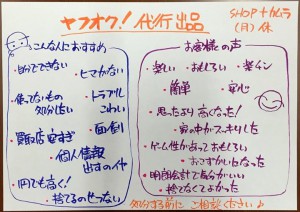 ヤフオク!代行出品
SHOPナカムラ
(月)休
こんな人におすすめ
自分でできない
ヒマがない
使ってないもの
処分したい
トラブル
こわい
買取店安すぎ
面倒
個人情報
出すのイヤ
1円でも高く!
捨てるのせつない
お客様の声
楽しい
おもしろい
楽チン
簡単
安心
思ったより高くなった!
家の中がスッキリした
ゲーム性があっておもしろい
おこずかいになった
明朗会計で良かった
捨てなくてよかった
処分する前にご相談ください♪